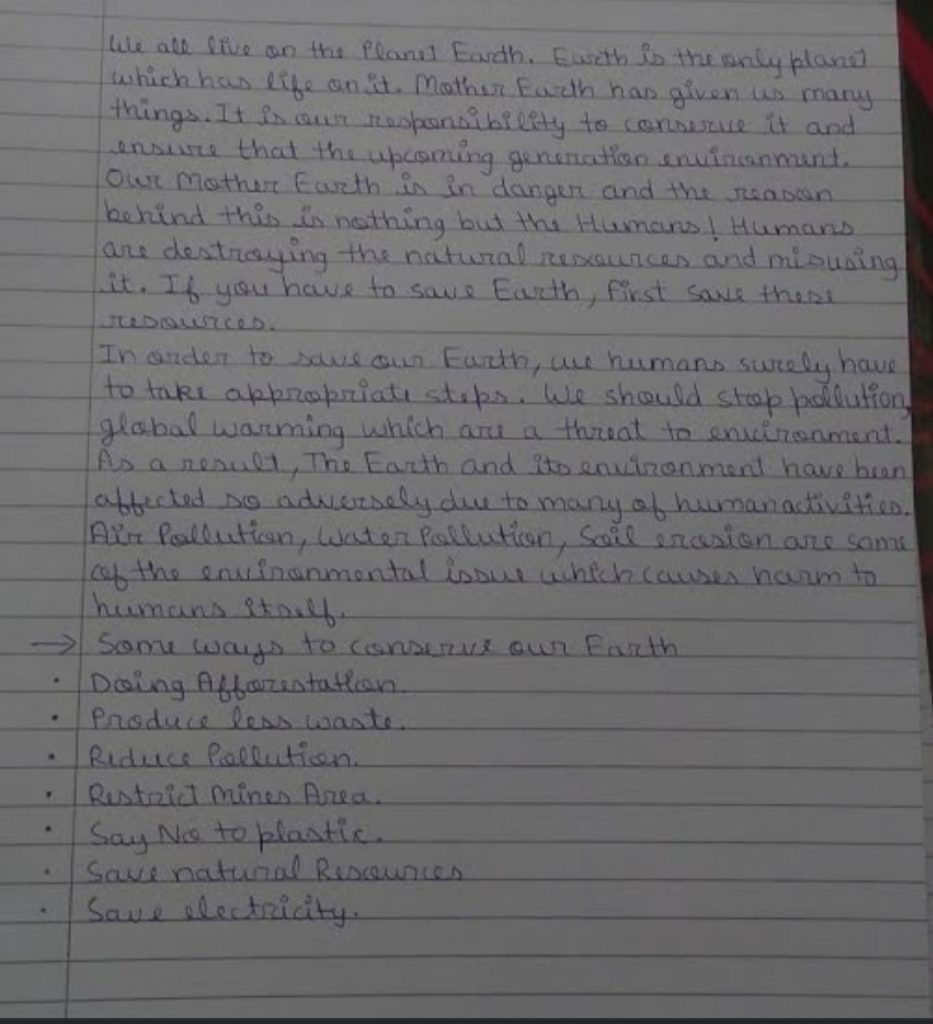 We all live on the Planet Earth. Earth is the only planet
which has life on it. Mother Earth has given us many
things. It is our responsibility to conserve it and
ensure that the upcoming generation environment.
Our Mother Earth is in danger and the reason
behind this is nothing but the Humans! Humans
are destroying the natural resources and misusing
it. If you have to save Earth, first save these
resources.
In order to save our Earth, we humans surely have
to take appropriate steps. We should stop pollution,
global warming which are a threat to environment.
As a result, The Earth and its environment have been
affected so adversely due to many of human activities.
Air Pollution, Water Pollution, Soil erosion are some
of the environmental issue which causes harm to
humans itself.
→ Some ways to conserve our Earth
· Doing Afforestation.
· Produce less waste.
· Reduce Pollution.
· Restrict Mines Area.
· Say No to plastic.
· Save natural Resources
· Save electricity.